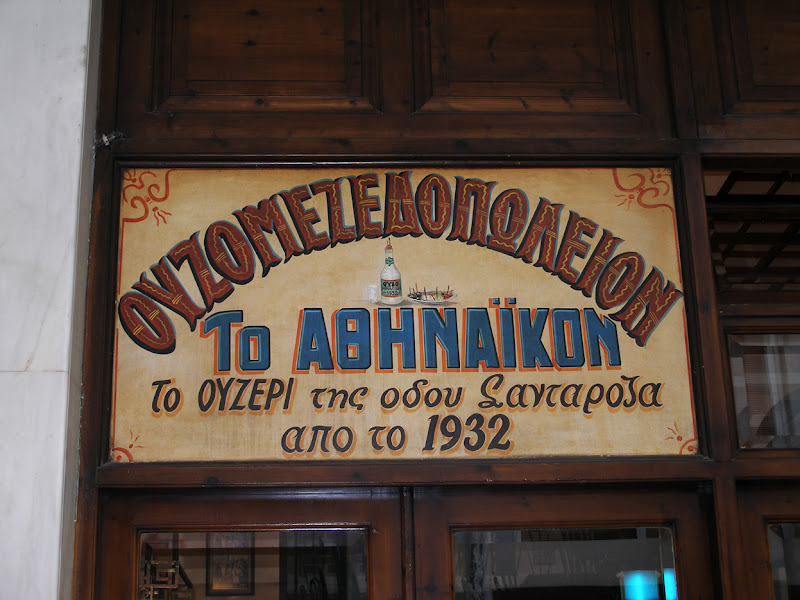 ΟΥΖΟΜΕΖΕΔΟΠΩΛΕΙΟΝ
ΟΥΖΟ
Το ΑΘΗΝΑΪΚΟΝ
Το ΟΥΖΕΡΙ της οδου Σανταροζα
απο το 1932